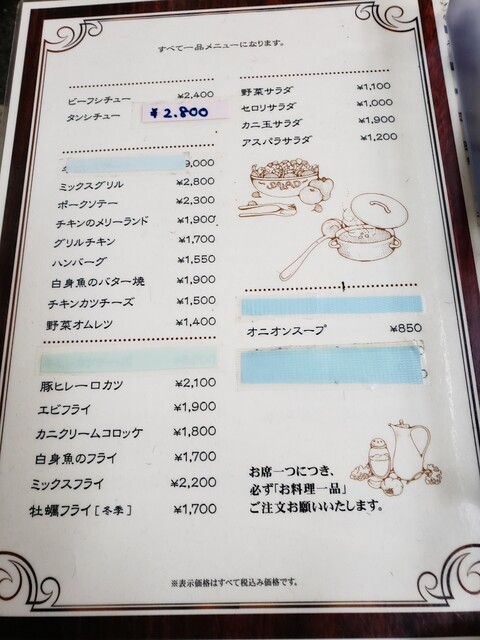 すべて一品メニューになります。
ビーフシチュー ¥2,400
タンシチュー ¥2.800
9,000
ミックスグリル ¥2,800
ポークソテー ¥2,300
チキンのメリーランド ¥1,900
グリルチキン ¥1,700
ハンバーグ ¥1,550
白身魚のバター焼 ¥1,900
チキンカツチーズ ¥1,500
野菜オムレツ ¥1,400
豚ヒレ一口カツ ¥2,100
エビフライ ¥1,900
カニクリームコロッケ ¥1,800
白身魚のフライ ¥1,700
ミックスフライ ¥2,200
牡蠣フライ[冬季] ¥1,700
野菜サラダ ¥1,100
セロリサラダ ¥1,000
カニ玉サラダ ¥1,900
アスパラサラダ ¥1,200
SALAD
オニオンスープ ¥850
お席一つにつき、
必ず「お料理一品」
ご注文お願いいたします。
※表示価格はすべて税込み価格です。